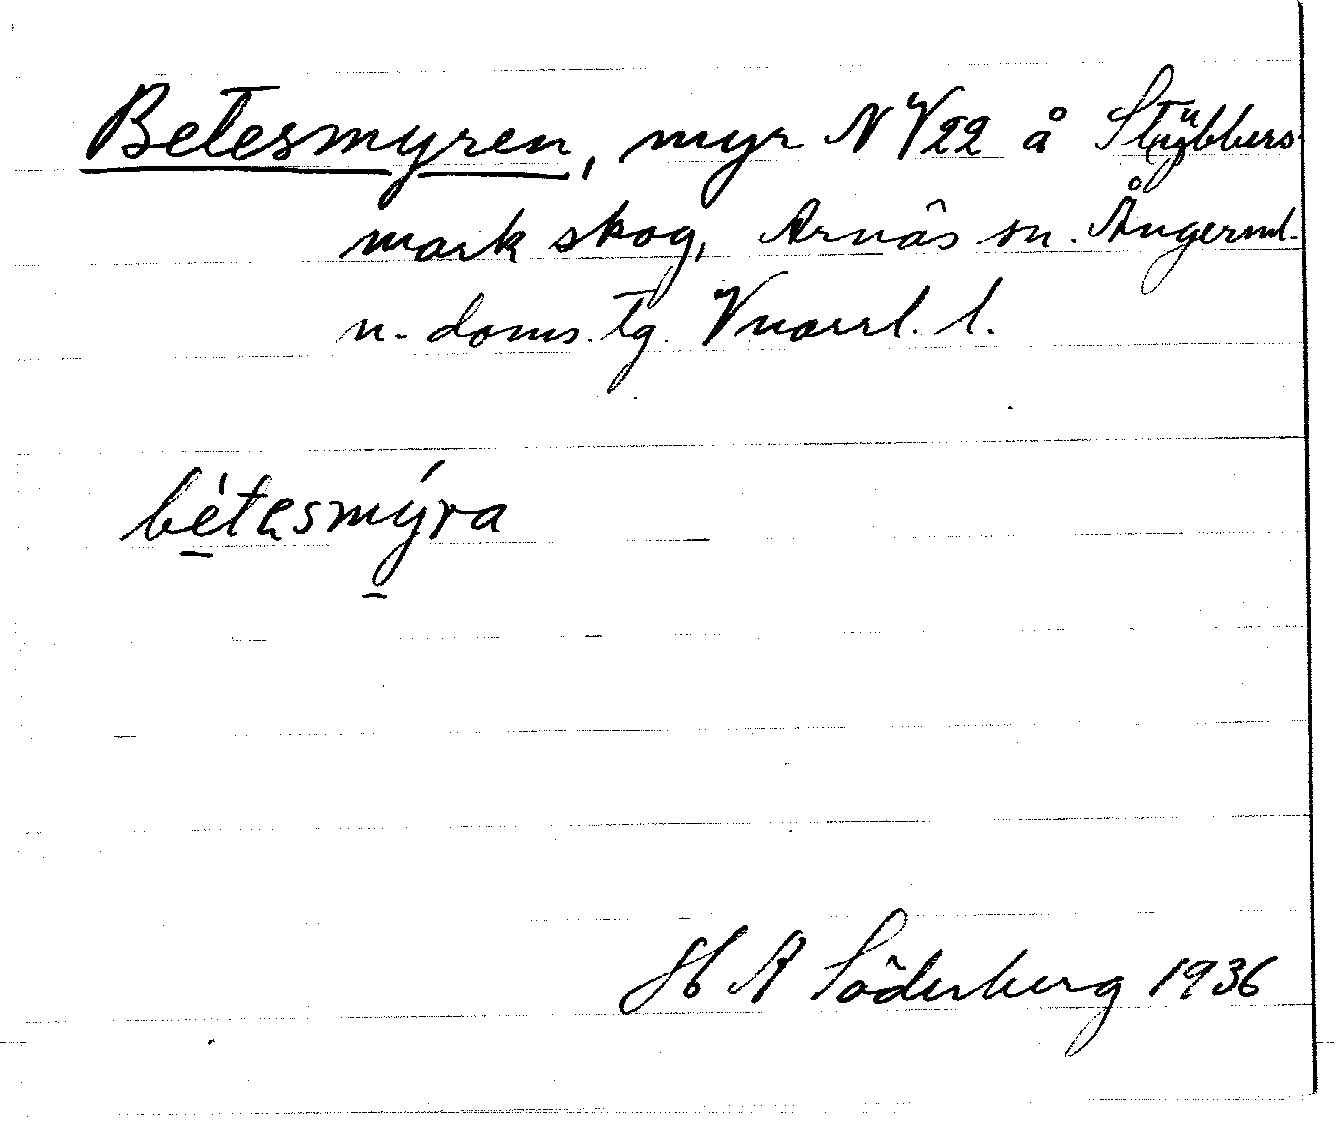 Betesmyren, myr N V22 å Stybbers-
mark skog, Arnäs sn. Ångerml.
n. doms. tg. Vnorrl. l.
bétesmýra
H A Söderberg 1936